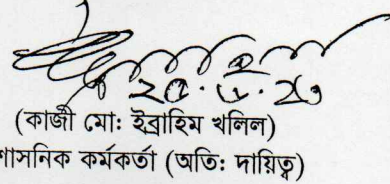 ২৫.৫.২৩
(কাজী মো: ইব্রাহিম খলিল)
শাসনিক কর্মকর্তা (অতি: দায়িত্ব)